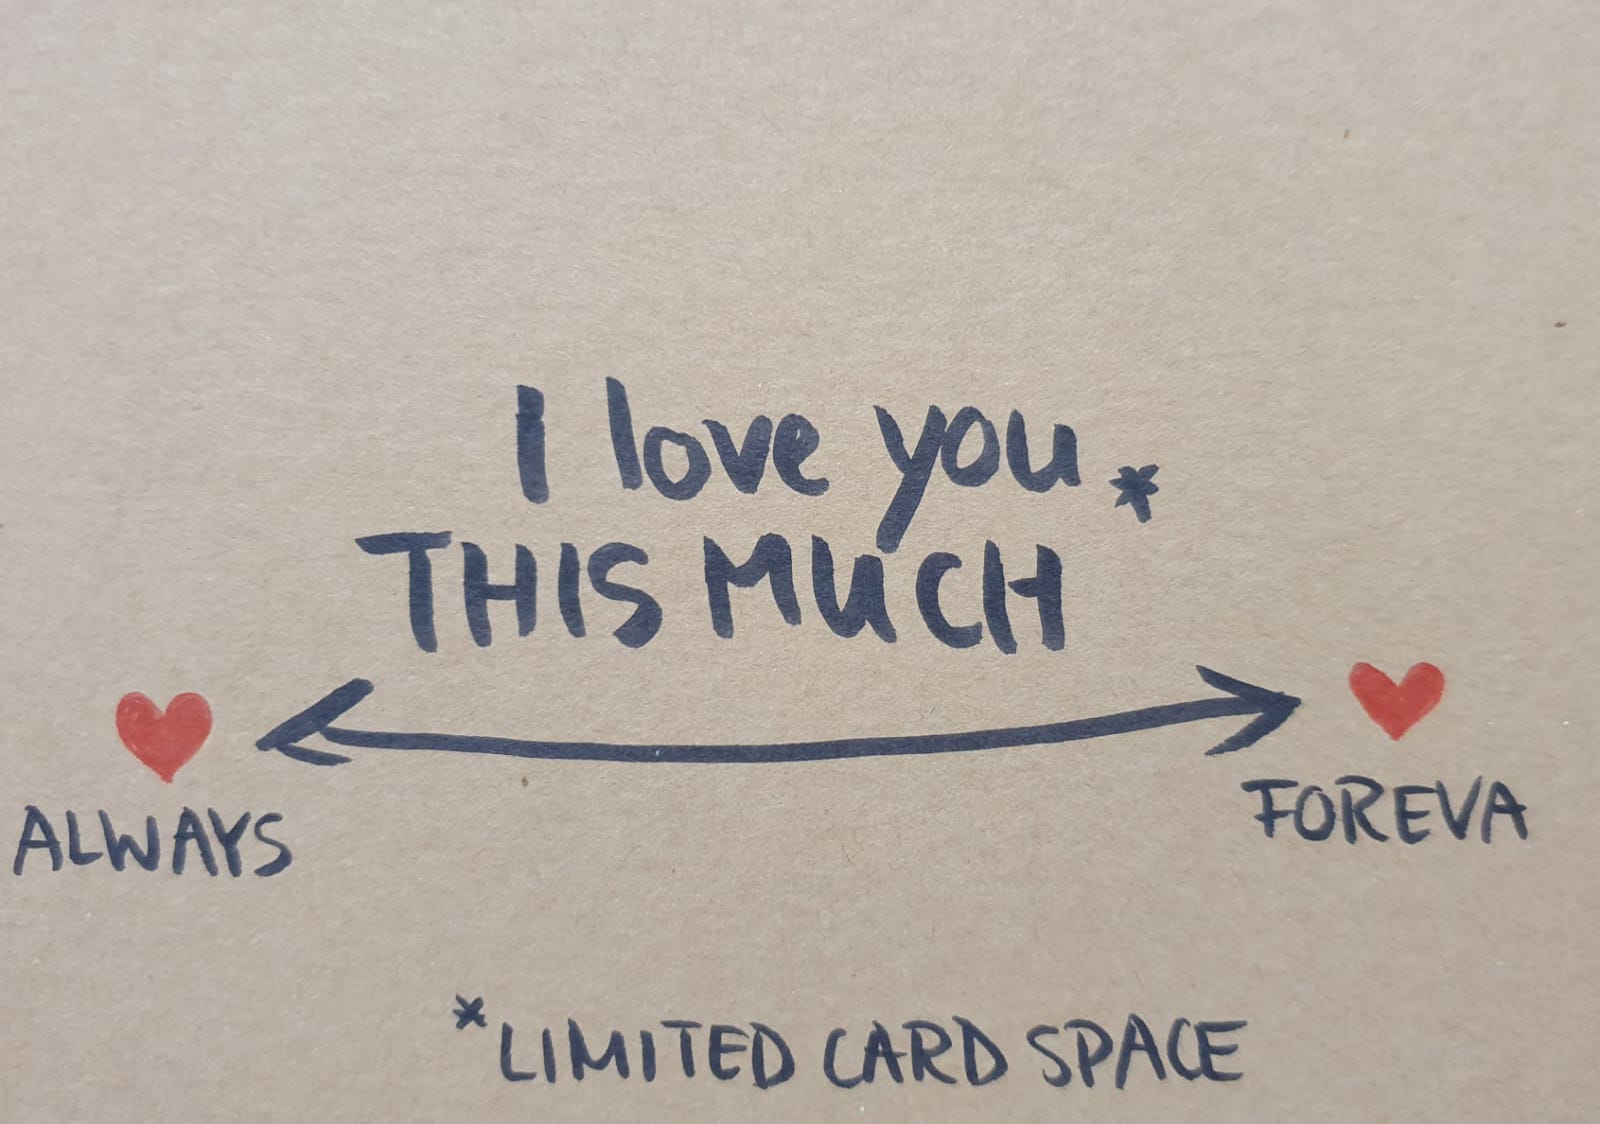 I love you *
THIS MUCH
ALWAYS
FOREVA
*LIMITED CARD SPACE